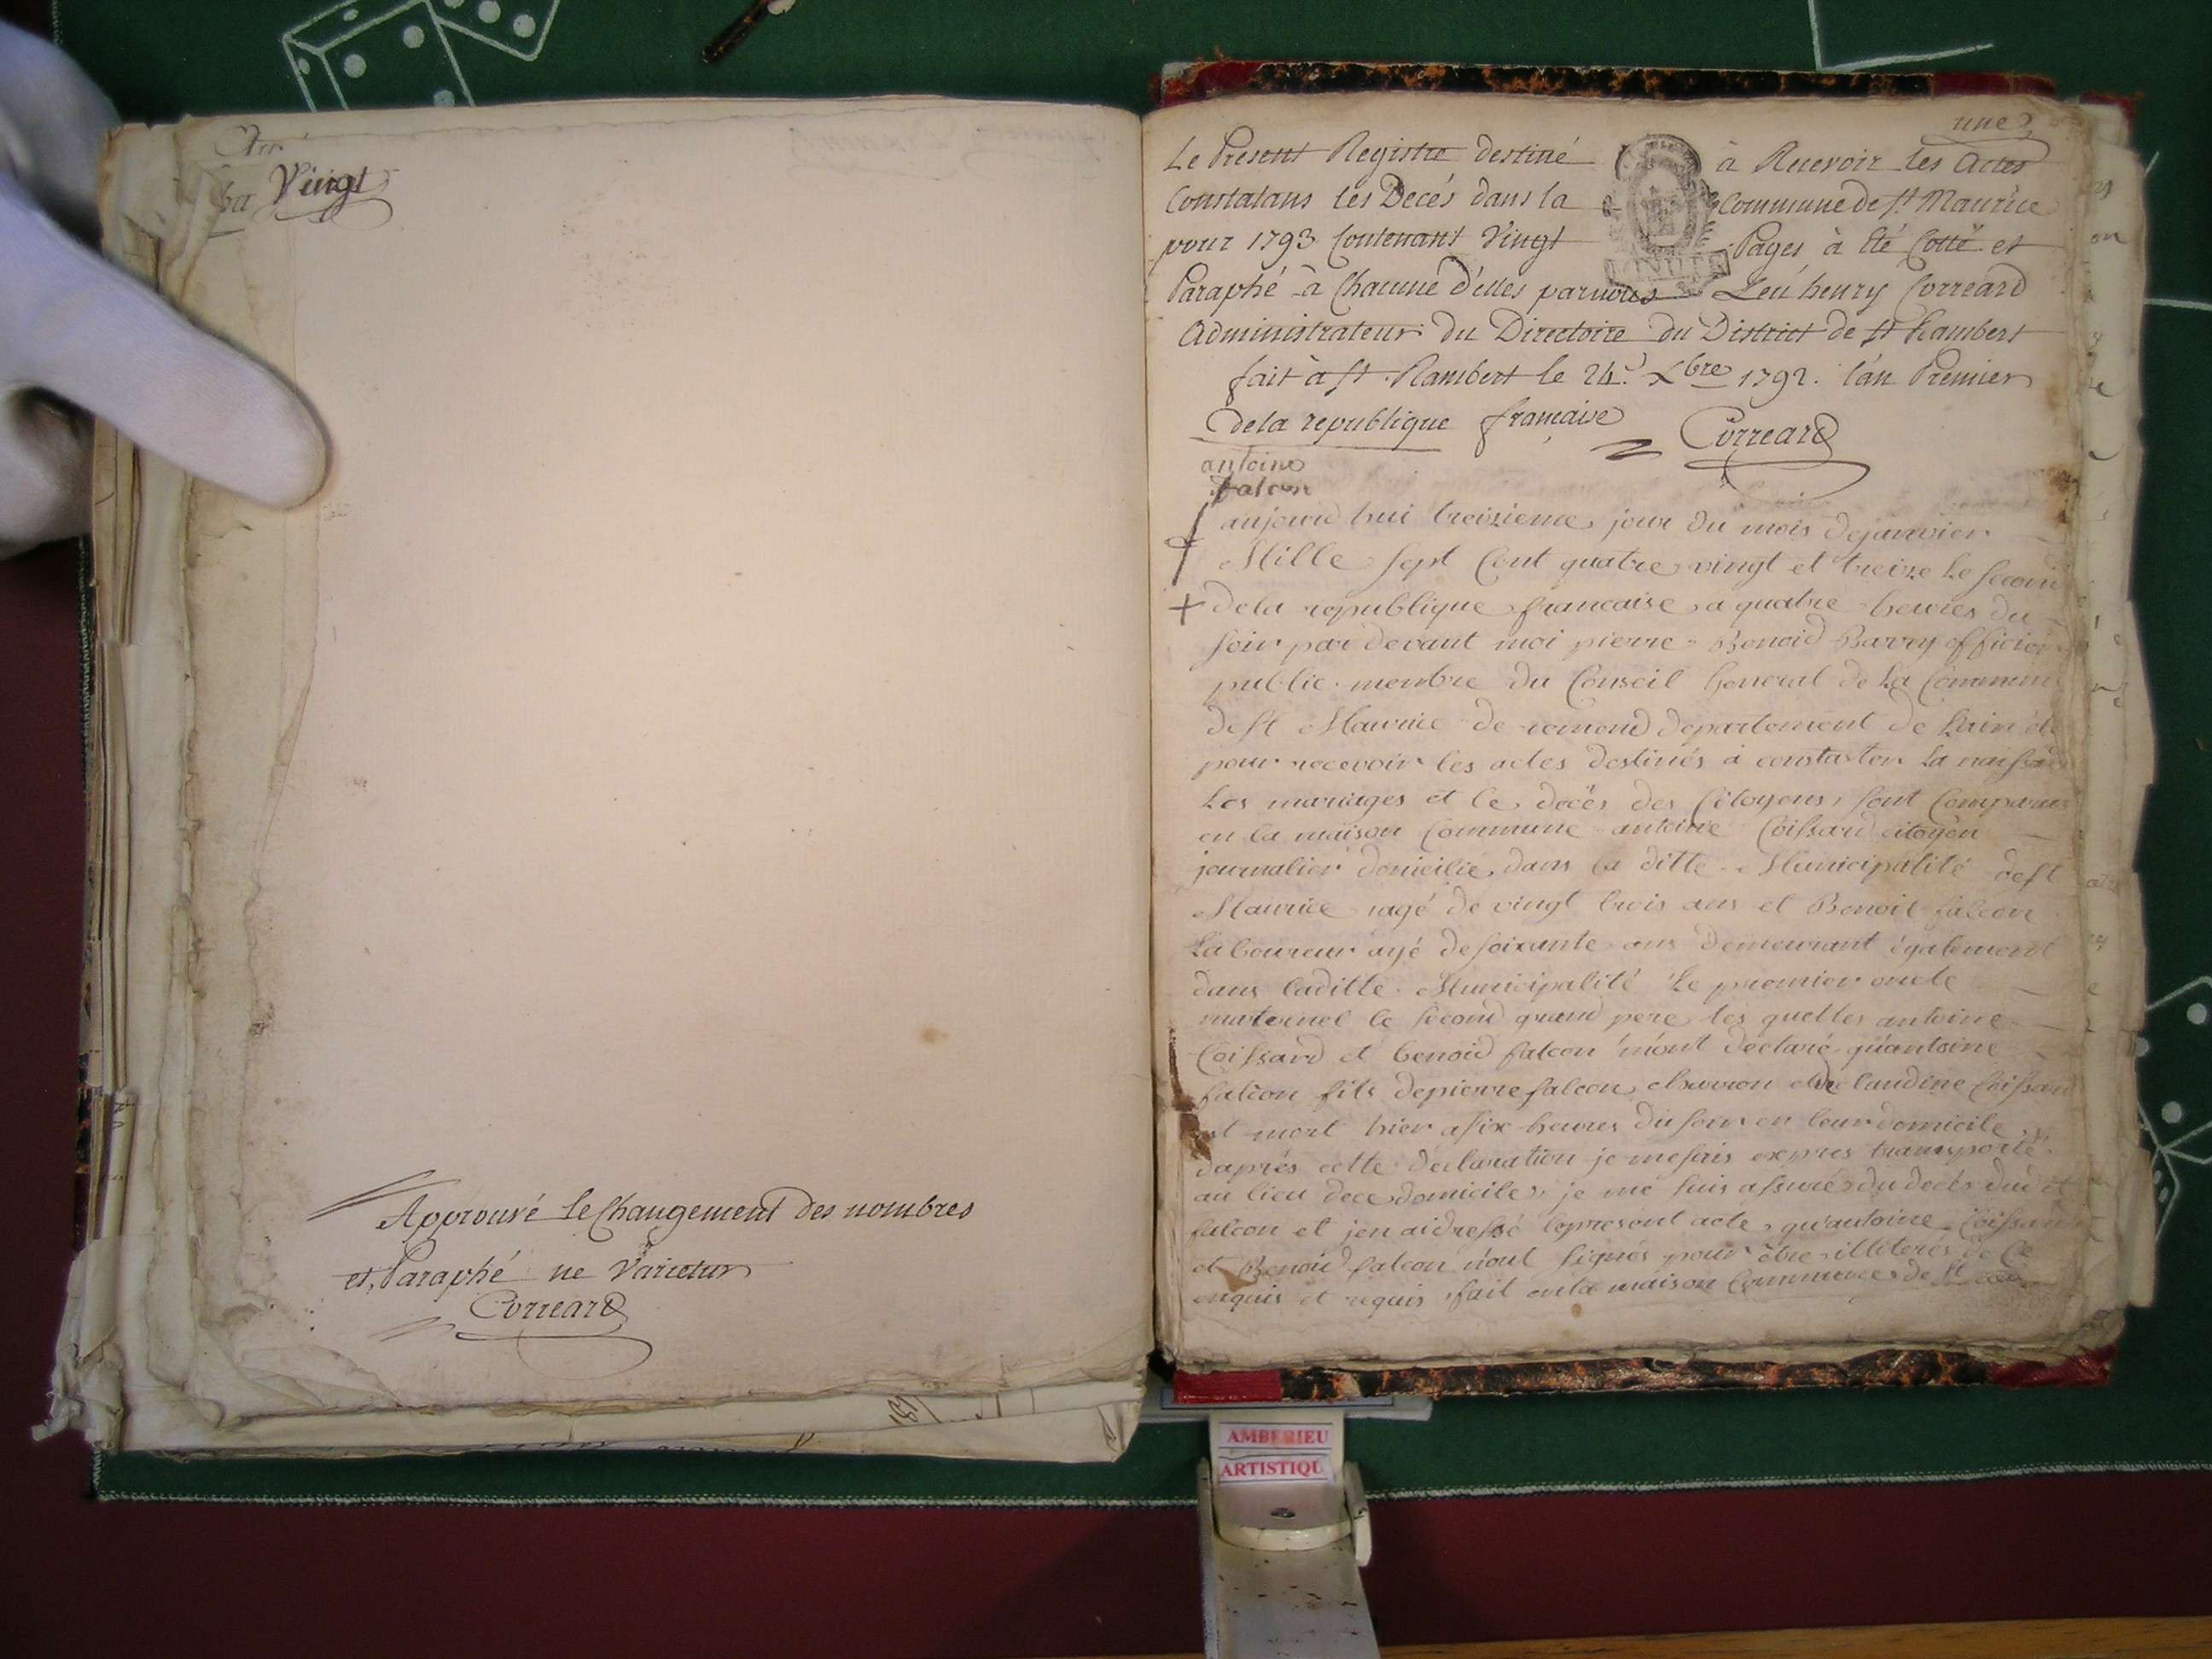 Vingt
Approuvé le Changement des nombres
et Paraphé ne Varietur
Correard
une
Le Present Registre destiné à Recevoir les Actes
Constatans les Decés dans la Commune de St Maurice
pour 1793 Contenant Vingt Pages à été Cotté et
Paraphé à Chacune d'elles par nous Leu henry Correard
Administrateur du Directoire du District de St Rambert
fait à St Rambert le 24e Xbre 1792. l'an Premier
de la republique française Correard
antoine
falcon
aujourd hui troizieme jour du mois de janvier
Mille Sept Cent quatre vingt et treize Le Second
+ de la republique francaise a quatre heures du
soir par devant moi pierre Benoid Barry officier
public membre du Conseil General de La Commune
de St Maurice de remend departement de Lain
pour recevoir les actes destinés a constater La naissan
Les mariages et le decés des Citoyens, sont Comparus
en la maison Commune antoine Coissard citoyen
journalier domicilié dans la ditte Municipalité de St
Maurice agé de vingt trois ans et Benoit falcon
Laboureur agé de soixante ans demeurant également
dans laditte Municipalité Le premier oncle
maternel le second grand pere les quelles antoine
Coissard et benoid falcon m'ont déclaré qu'antoine
falcon fils de pierre falcon charron et de claudine Coissard
est mort hier a six heures du soir en leur domicile
d'aprés cette declaration je me sais expres transporté
au lieu de ce domicile, je me suis assuré du decés dud
falcon et j'en ai dressé le present acte, qu'antoine Coissard
et Benoid falcon n'ont signés pour être illiterés de ce
enquis et requis, fait en la maison Commune de St
AMBERIEU
ARTISTIQU